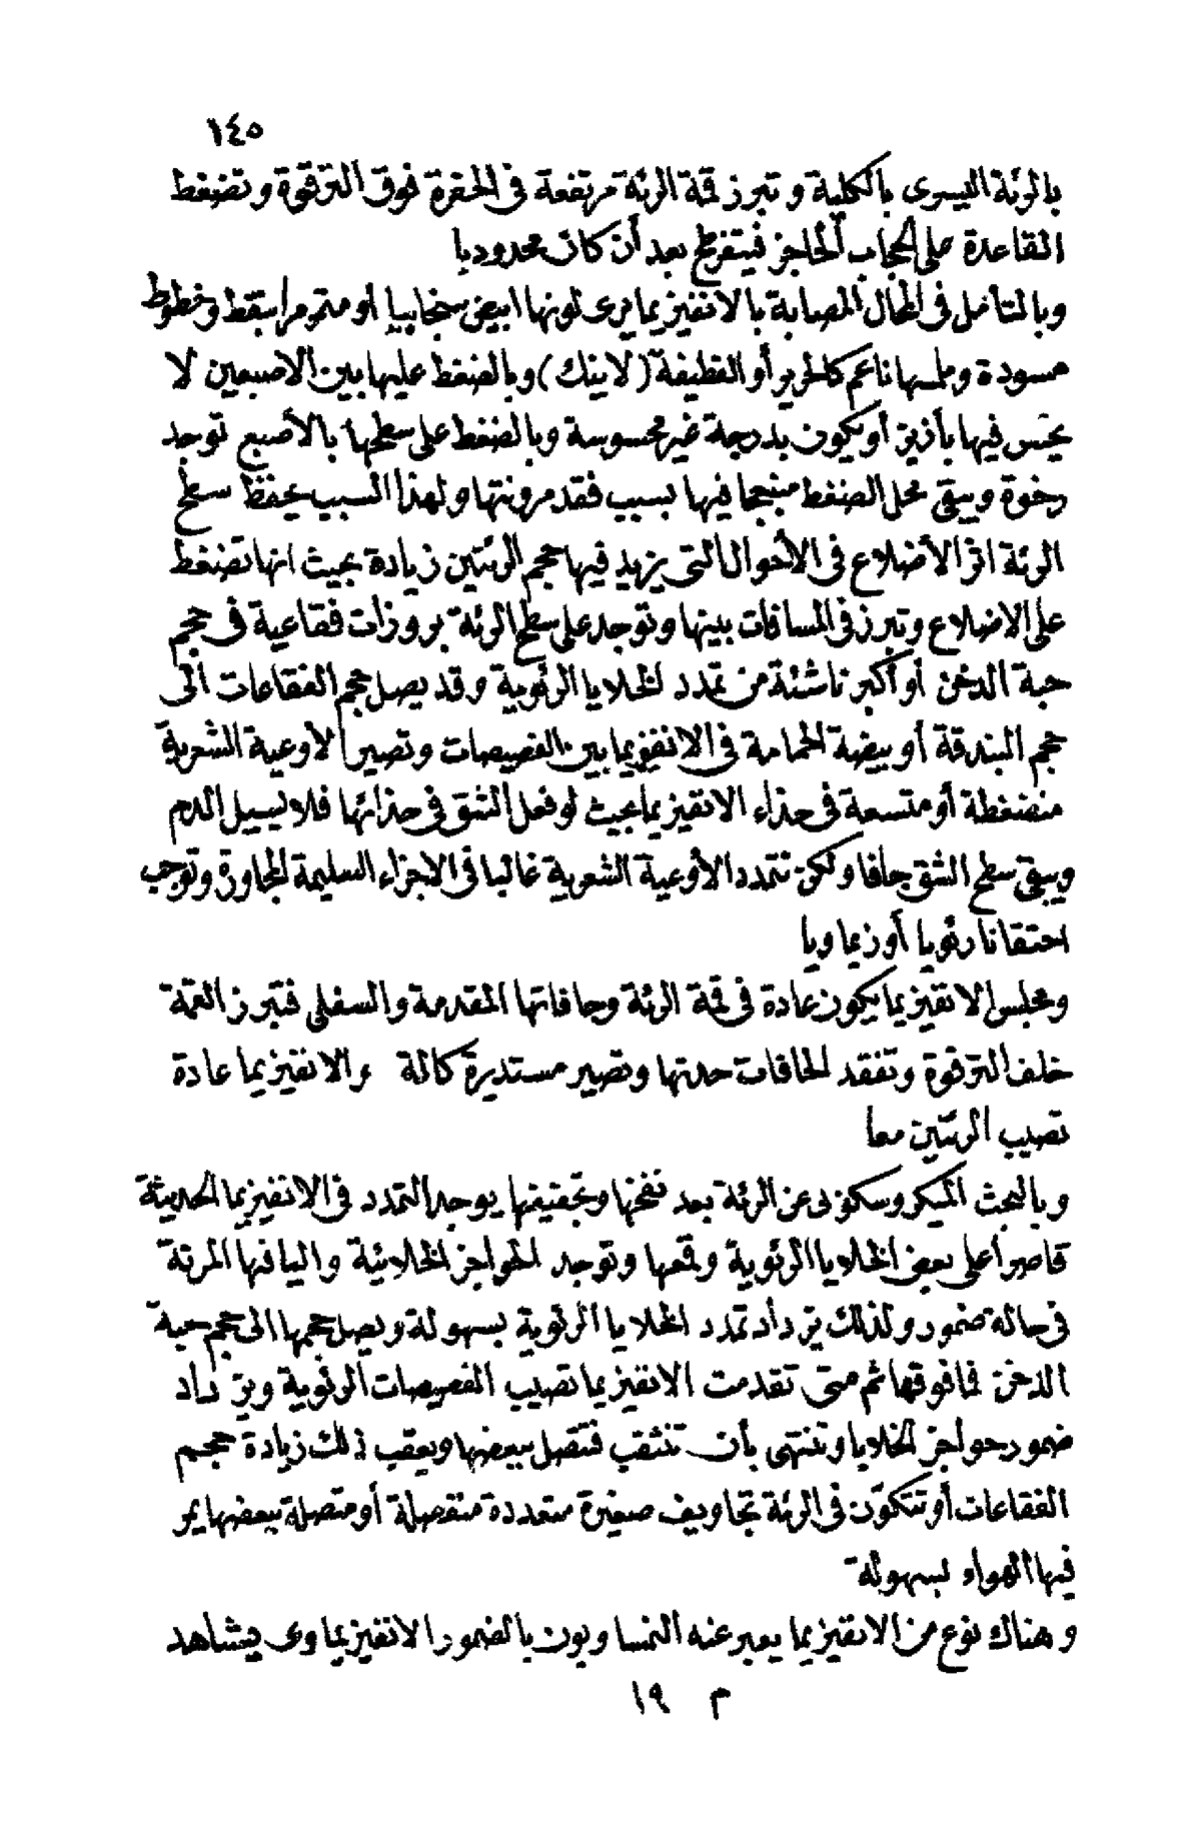 ١٤٥
بالرئة اليسرى بالكلية وتبرز قمة الرئة مرتفعة فى الحفرة فوق الترقوة وتضغط
القاعدة على الحجاب الحاجز فيتفرطح بعد أن كان محدوديا
وبالتأمل فى المحال المصابة بالانفيزيما يرى لونها ابيض سنجابيا أو متمرا بنقط وخطوط
مسودة وملمسها ناعم كالحرير أو القطيفة (لاينك) وبالضغط عليها بين الاصبعين لا
يحس فيها بأزيز أو يكون بدرجة غير محسوسة وبالضغط على سطحها بالأصبع توجد
رخوة ويبقى محل الضغط منبعجا فيها بسبب فقد مرونتها ولهذا السبب يحفظ سطح
الرئة اثر الأضلاع فى الأحوال التى يزيد فيها حجم الرئتين زيادة بحيث انها تضغط
على الاضلاع وتبرز فى المسافات بينها وتوجد على سطح الرئة بروزات فقاعية فى حجم
حبة الدخن أو أكبر ناشئة من تمدد الخلايا الرئوية وقد يصل حجم الفقاعات الى
حجم البندقة أو بيضة الحمامة فى الانفيزيما بين الفصيصات وتصير الأوعية الشعرية
منضغطة أو متسعة فى حذاء الانفيزيما بحيث لو فعل الشق فى حذائها فلا يسيل الدم
ويبقى سطح الشق جافا ولكن تتمدد الأوعية الشعرية غالبا فى الاجزاء السليمة المجاورة وتوجب
احتقانا رئويا أوزيماويا
ومجلس الانفيزيما يكون عادة فى قمة الرئة وحافاتها المقدمة والسفلى فتبرز القمة
خلف الترقوة وتفقد الحافات حدتها وتصير مستديرة كالة والانفيزيما عادة
تصيب الرئتين معا
وبالبحث الميكروسكوبى عن الرئة بعد نفخها وتجفيفها يوجد التمدد فى الانفيزيما الحديثة
قاصرا على بعض الخلايا الرئوية وقمعها وتوجد الحواجز الخلائية واليافها المرنة
فى حالة ضمور ولذلك يزداد تمدد الخلايا الرئوية بسهولة ويصل حجمها الى حجم حبة
الدخن فما فوقها ثم متى تقدمت الانفيزيما تصيب الفصيصات الرئوية ويزداد
ضمور حواجز الخلايا وتنتهى بأن تنثقب فتتصل ببعضها ويعقب ذلك زيادة حجم
الفقاعات أو تتكون فى الرئة تجاويف صغيرة متعددة منفصلة أو متصلة ببعضها يمر
فيها الهواء بسهولة
وهناك نوع من الانفيزيما يعبر عنه النمساويون بالضمور الانفيزيماوى ويشاهد
م ١٩